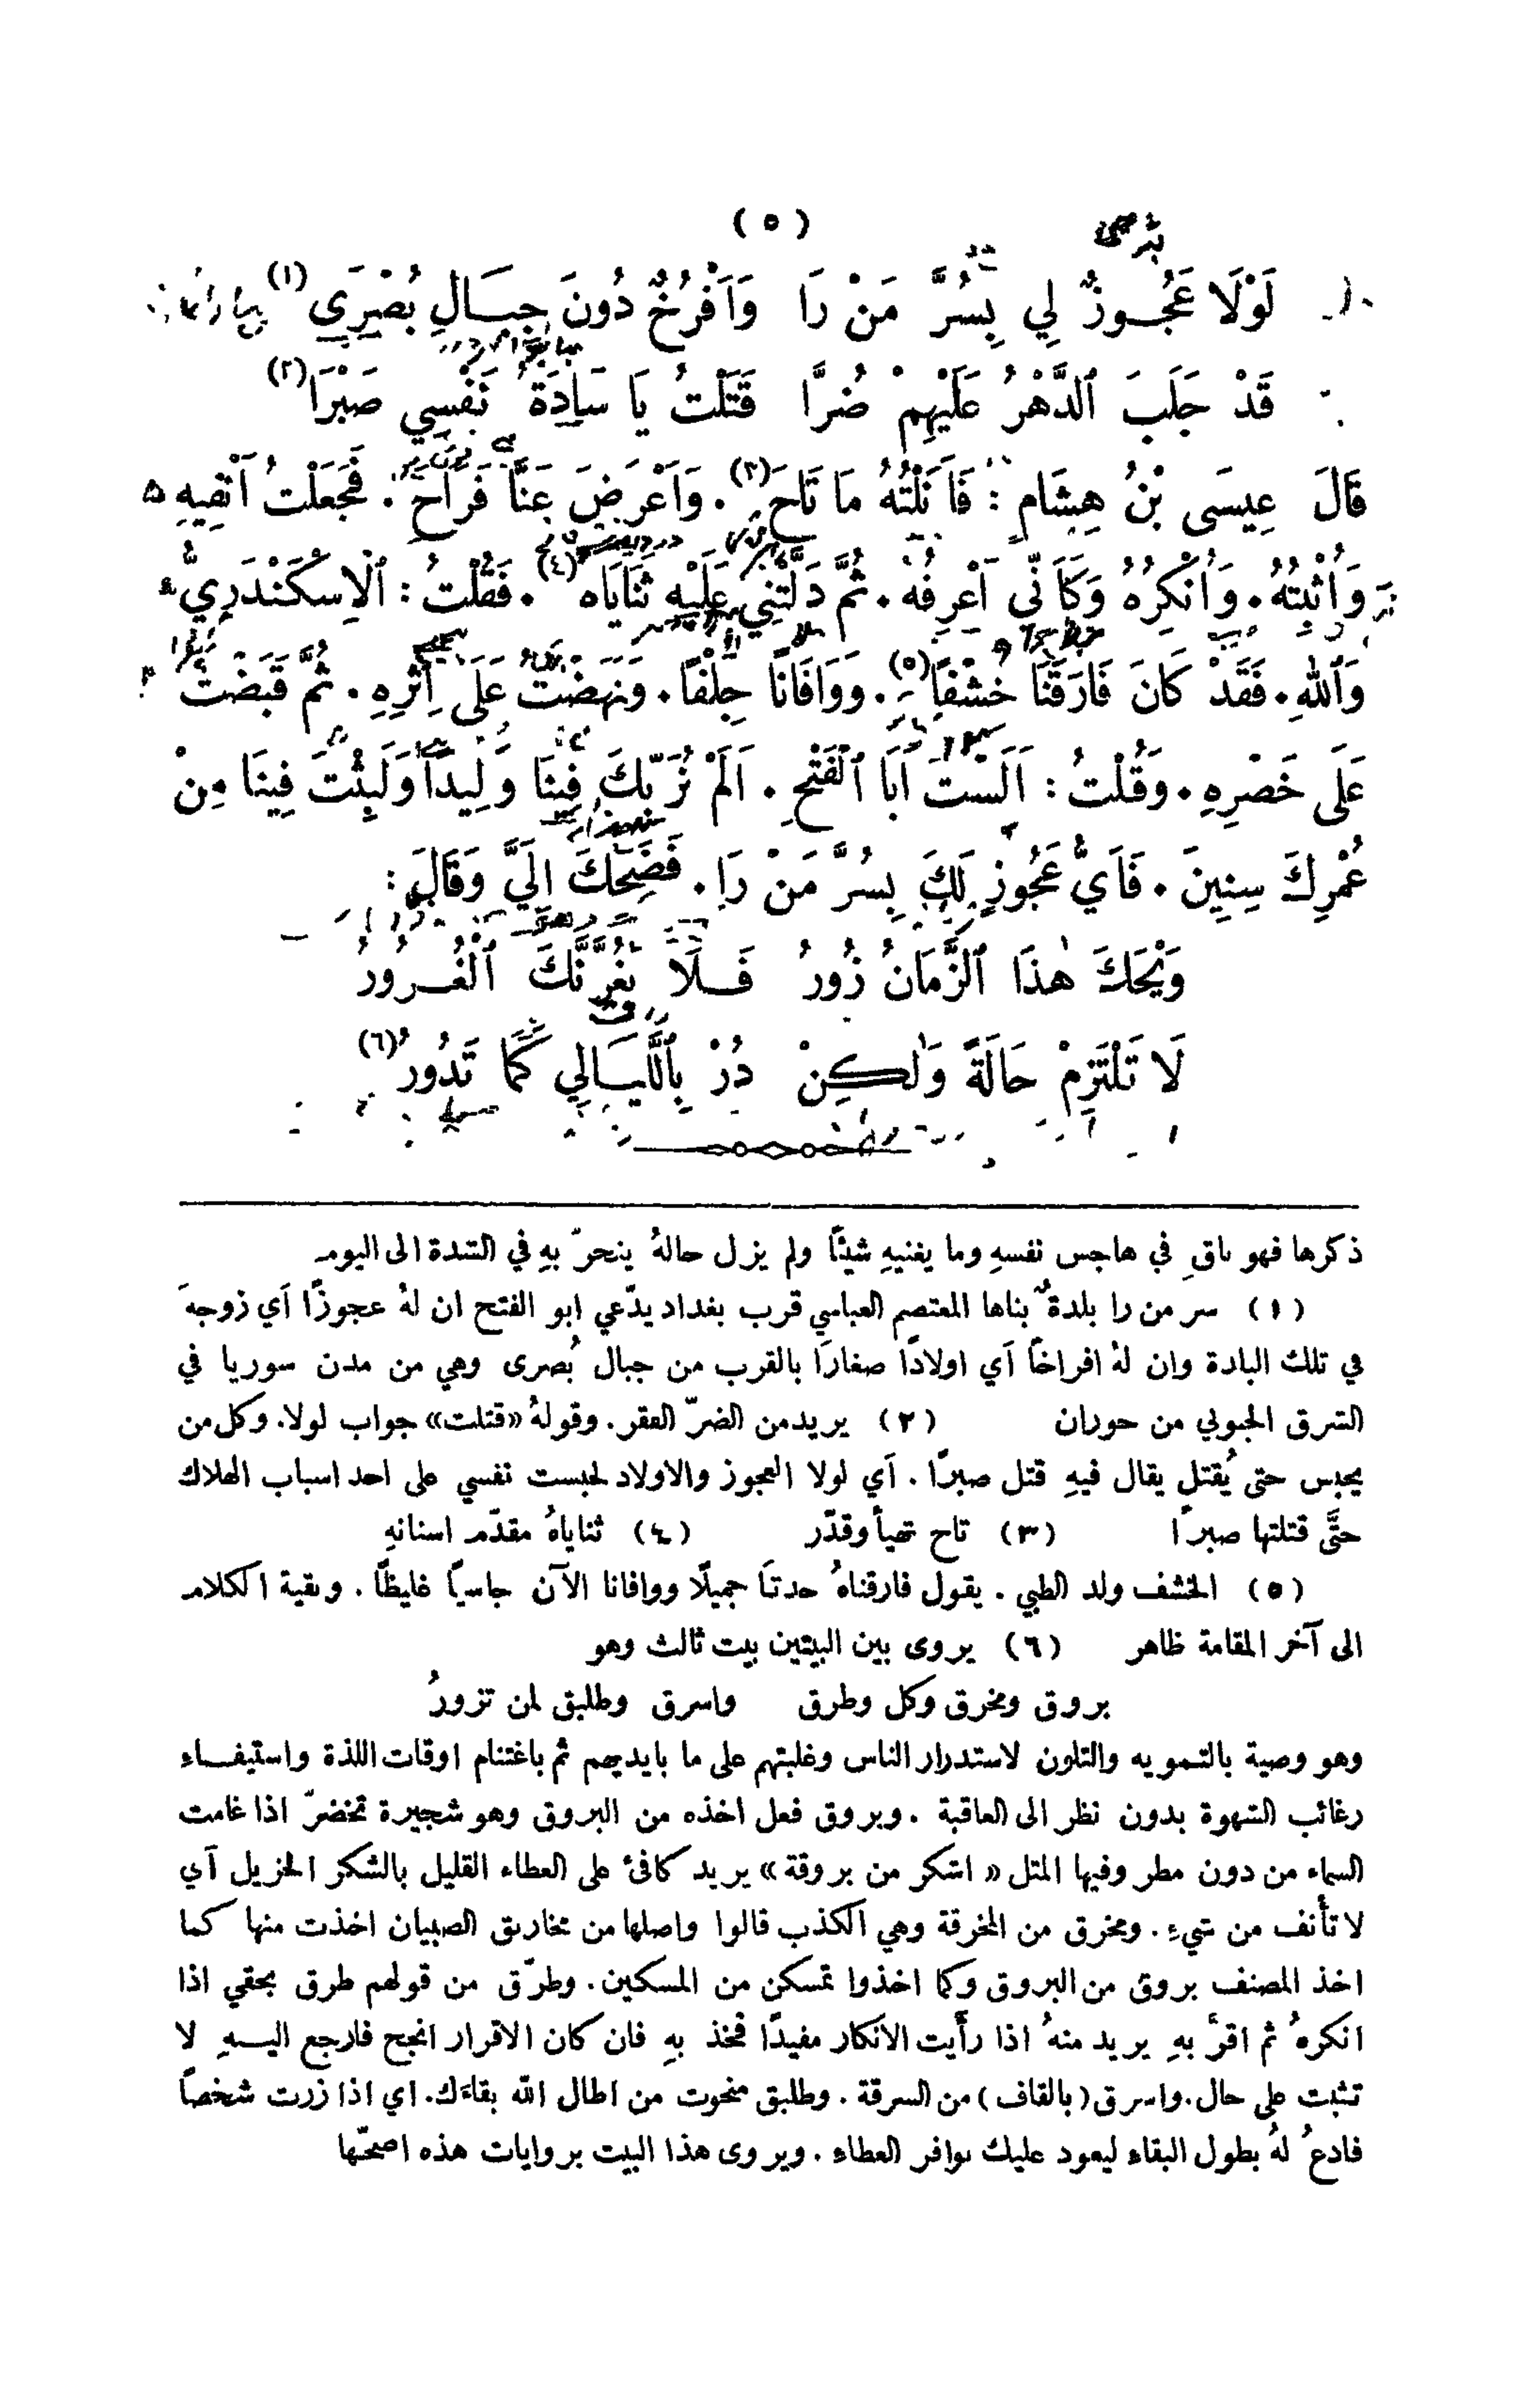 (٥)
لَوْلَا عَجُوزٌ لِي بِسُرَّ مَنْ رَا وَأَفْرُخٌ دُونَ جِبَالِ بُصْرَى (١)
قَدْ جَلَبَ ٱلدَّهْرُ عَلَيْهِمْ ضُرَّا قَتَلْتُ يَا سَادَةُ نَفْسِي صَبْرَا (٢)
قَالَ عِيسَى بْنُ هِشَامٍ : فَأَنَلْتُهُ مَا تَاحَ (٣) . وَأَعْرَضَ عَنَّا فَرَاحَ . فَجَعَلْتُ أَنْفِيهِ
وَأُثْبِتُهُ . وَأُنْكِرُهُ وَكَأَنِّي أَعْرِفُهُ . ثُمَّ دَلَّتْنِي عَلَيْهِ ثَنَايَاه (٤) . فَقُلْتُ : ٱلْإِسْكَنْدَرِيُّ
وَٱللهِ . فَقَدْ كَانَ فَارَقَنَا خُشْفًا (٥) . وَوَافَانَا جِلْفًا . وَنَهَضْتُ عَلَى إِثْرِهِ . ثُمَّ قَبَضْتُ
عَلَى خَصْرِهِ . وَقُلْتُ : أَلَسْتَ أَبَا ٱلْفَتْحِ . أَلَمْ نُرَبِّكَ فِينَا وَلِيدًا وَلَبِثْتَ فِينَا مِنْ
عُمْرِكَ سِنِينَ . فَأَيُّ عَجُوزٍ لَكَ بِسُرَّ مَنْ رَا . فَضَحِكَ إِلَيَّ وَقَالَ :
وَيْحَكَ هٰذَا ٱلزَّمَانُ زُورُ فَلَا يَغُرَّنَّكَ ٱلْغُرُورُ
لَا تَلْتَزِمْ حَالَةً وَلٰكِنْ دُرْ بِٱللَّيَالِي كَمَا تَدُورُ (٦)
ذكرها فهو باقٍ في هاجس نفسهِ وما يغنيهِ شيئًا ولم يزل حالهُ ينحرّ بهِ في الشدة الى اليوم
(١) سر من را بلدةٌ بناها المعتصم العباسي قرب بغداد يدّعي ابو الفتح ان لهُ عجوزًا أي زوجةً
في تلك البادة وان لهُ افراخًا أي اولادًا صغارًا بالقرب من جبال بُصرى وهي من مدن سوريا في
الشرق الجنوبي من حوران (٢) يريد من الضرّ الفقر. وقولهُ «قتلت» جواب لولا. وكل من
يحبس حتى يُقتل يقال فيهِ قتل صبرًا . أي لولا العجوز والاولاد لحبست نفسي على احد اسباب الهلاك
حتَّى قتلتها صبرًا (٣) تاح تهيأ وقدّر (٤) ثناياهُ مقدّم اسنانهِ
(٥) الخشف ولد الظبي . يقول فارقناهُ حدثًا جميلًا ووافانا الآن جاسيًا غليظًا . وبقية الكلام
الى آخر المقامة ظاهر (٦) يروى بين البيتين بيت ثالث وهو
بروق ومخرق وكل وطرق واسرق وطلبق لمن تزورُ
وهو وصية بالتمويه والتلون لاستدرار الناس وغلبتهم على ما بايديهم ثم باغتنام اوقات اللذة واستيفاء
رغائب الشهوة بدون نظر الى العاقبة . وبروق فعل اخذه من البروق وهو شجيرة تخضرّ اذا غامت
السماء من دون مطر وفيها المثل « اشكر من بروقة » يريد كافئ على العطاء القليل بالشكر الجزيل أي
لا تأنف من شيءٍ . ومخرق من المخرقة وهي الكذب قالوا واصلها من مخاريق الصبيان اخذت منها كما
اخذ المصنف بروق من البروق وكما اخذوا تمسكن من المسكين . وطرّق من قولهم طرق بحقي اذا
انكرهُ ثم اقرّ بهِ يريد منهُ اذا رأيت الانكار مفيدًا فخذ بهِ فان كان الاقرار انجح فارجع اليهِ لا
تثبت على حال . واسرق (بالقاف) من السرقة . وطلبق منحوت من اطال الله بقاءك. اي اذا زرت شخصًا
فادعُ لهُ بطول البقاء ليعود عليك بوافر العطاء . ويروى هذا البيت بروايات هذه اصحّها